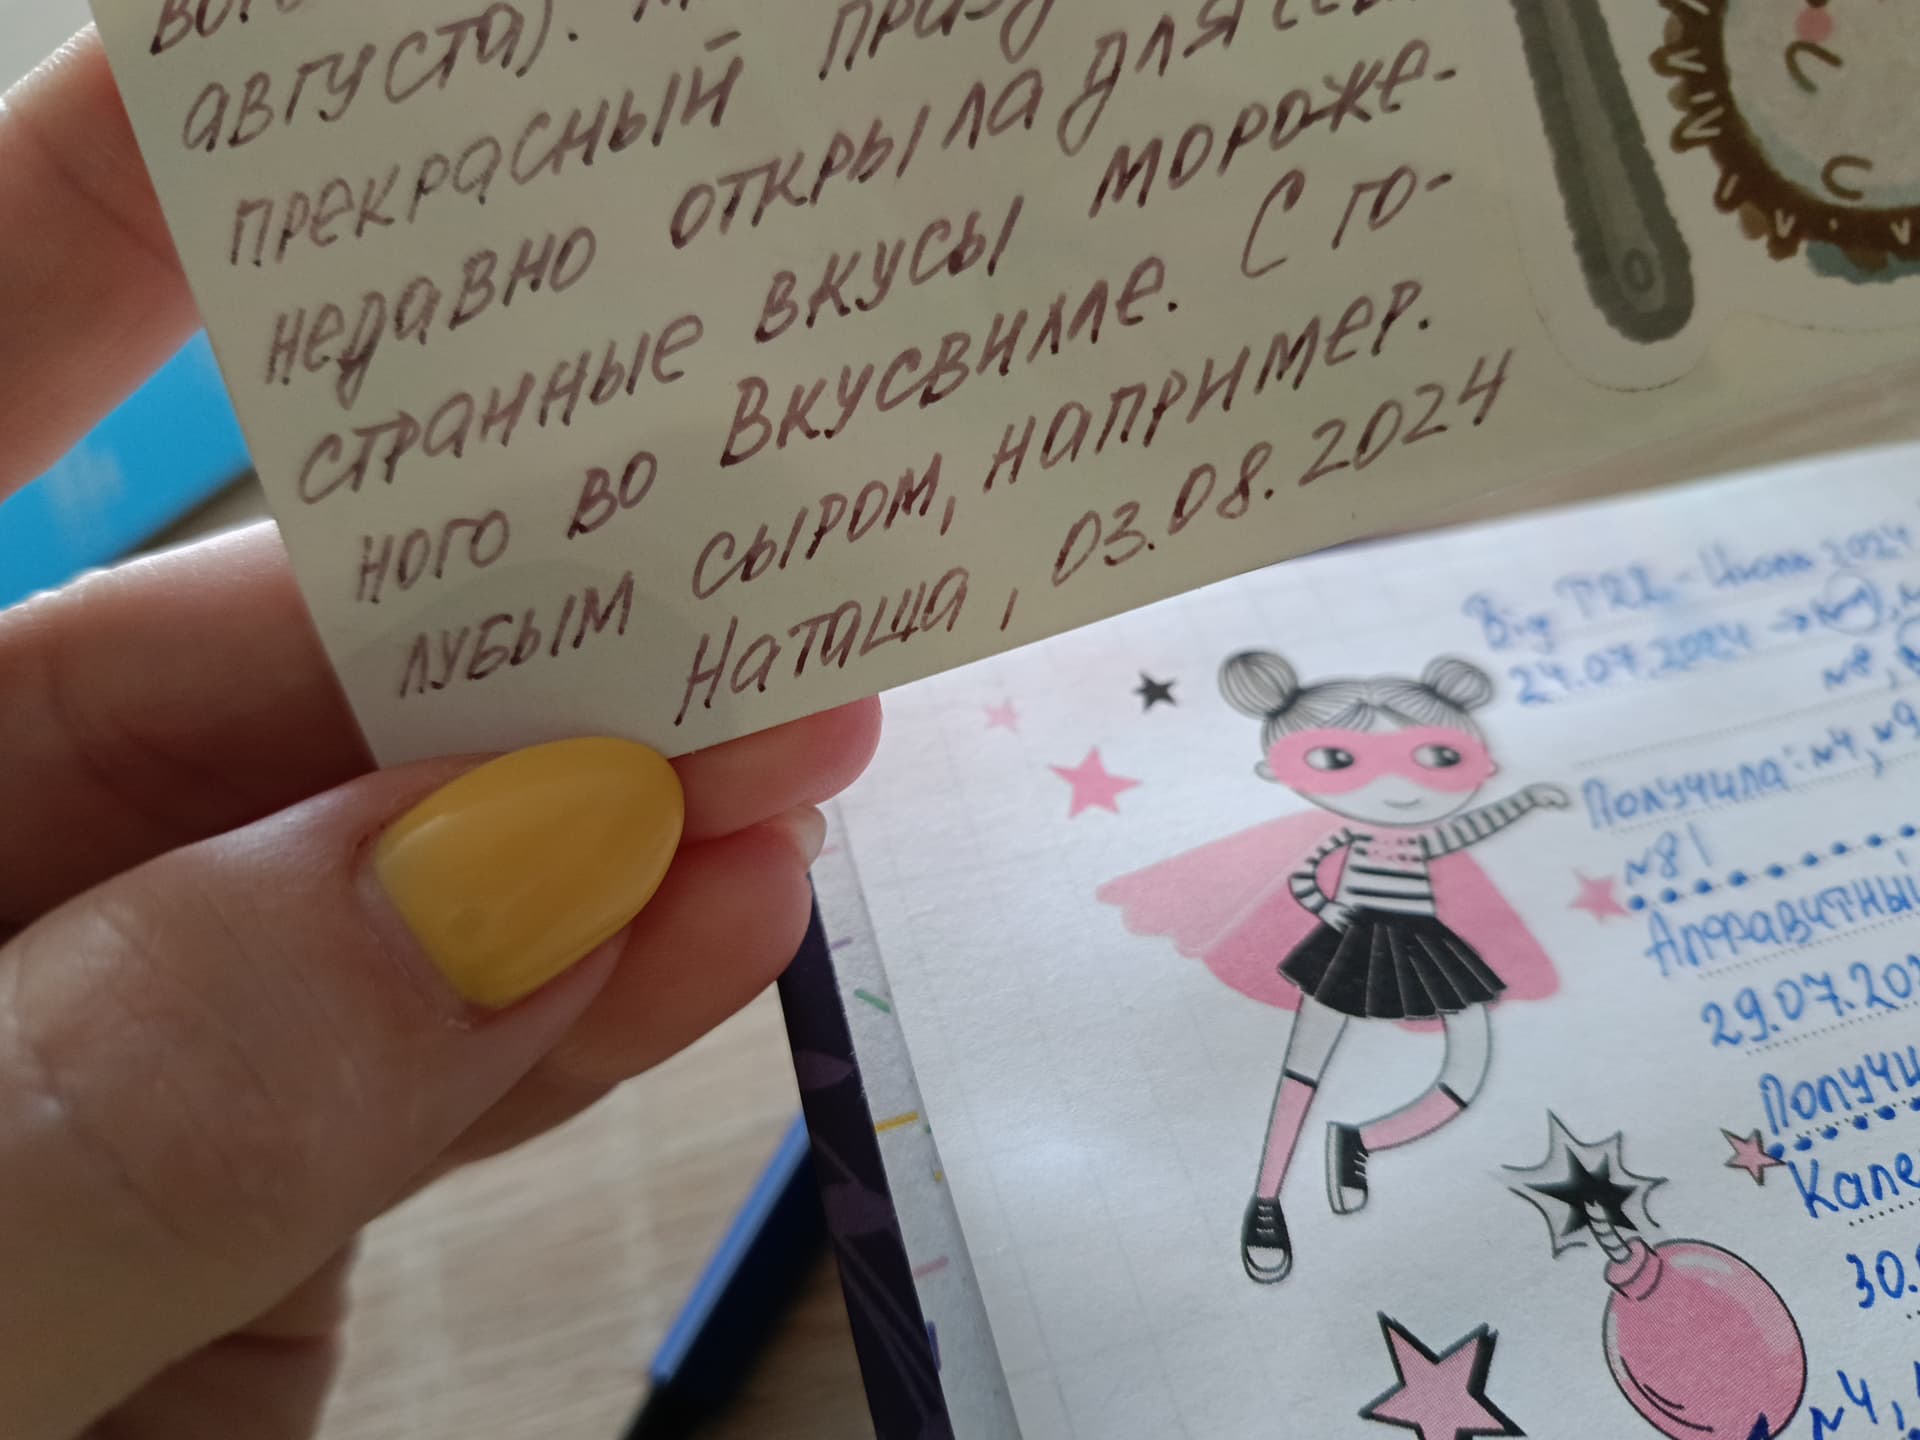 августа).
прекрасный
недавно открыла для
странные вкусы мороже-
ного во Вкусвилле. С го-
лубым сыром, например.
Наташа, 03.08.2024
24.07.2024 →
Получила: №4, №9
№81
Алфавитный
29.07.20
Получи
Кале
30.
№4,